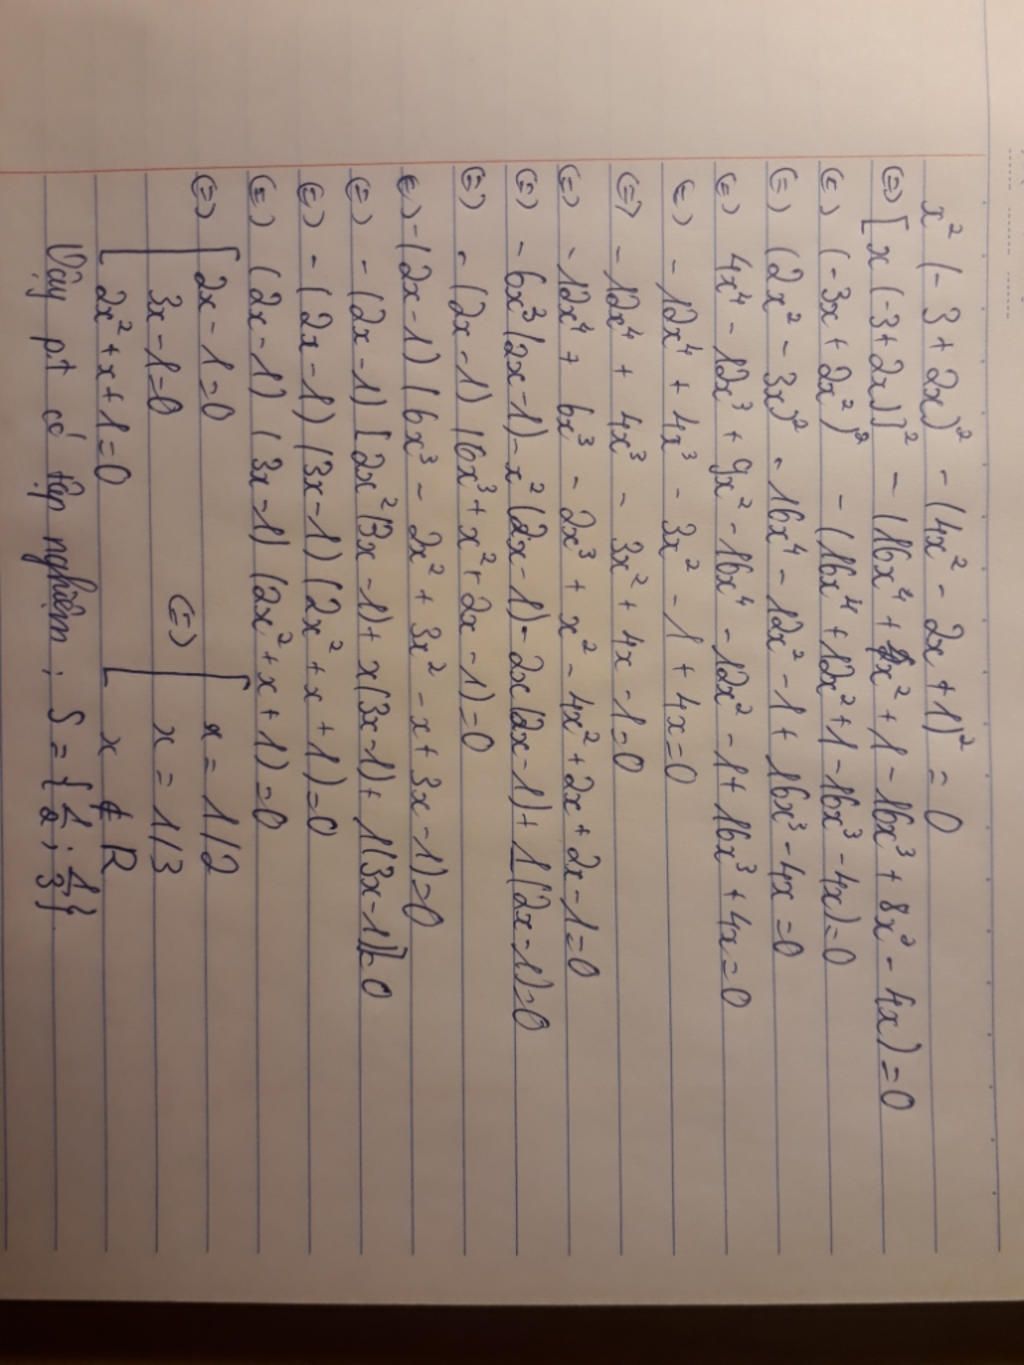 x² (-3+2x)² - (4x² - 2x+1)² = 0
(=) [x(-3+2x)]² - (16x⁴ + 4x² + 1 - 16x³ + 8x² - 4x) = 0
(=) (-3x + 2x²)² - (16x⁴ + 12x² + 1 - 16x³ - 4x) = 0
(=) (2x² - 3x)² - 16x⁴ - 12x² - 1 + 16x³ - 4x = 0
(=) 4x⁴ - 12x³ + 9x² - 16x⁴ - 12x² - 1 + 16x³ + 4x = 0
(=) - 12x⁴ + 4x³ - 3x² - 1 + 4x = 0
(=) - 12x⁴ + 4x³ - 3x² + 4x - 1 = 0
(=) - 12x⁴ + 6x³ - 2x³ + x² - 4x² + 2x + 2x - 1 = 0
(=) - 6x³(2x-1) - x²(2x-1) - 2x(2x-1) + 1(2x-1) = 0
(=) - (2x-1) (6x³ + x² + 2x - 1) = 0
(=) - (2x-1) (6x³ - 2x² + 3x² - x + 3x - 1) = 0
(=) - (2x-1) [2x²(3x-1) + x(3x-1) + 1(3x-1)] = 0
(=) - (2x-1) (3x-1) (2x² + x + 1) = 0
(=) (2x-1) (3x-1) (2x² + x + 1) = 0
(=) [ 2x-1=0 [ x = 1/2
3x-1=0 (=) x = 1/3
2x² + x + 1 = 0 x ∉ R
Vậy pt có tập nghiệm: S = {1/2 ; 1/3}